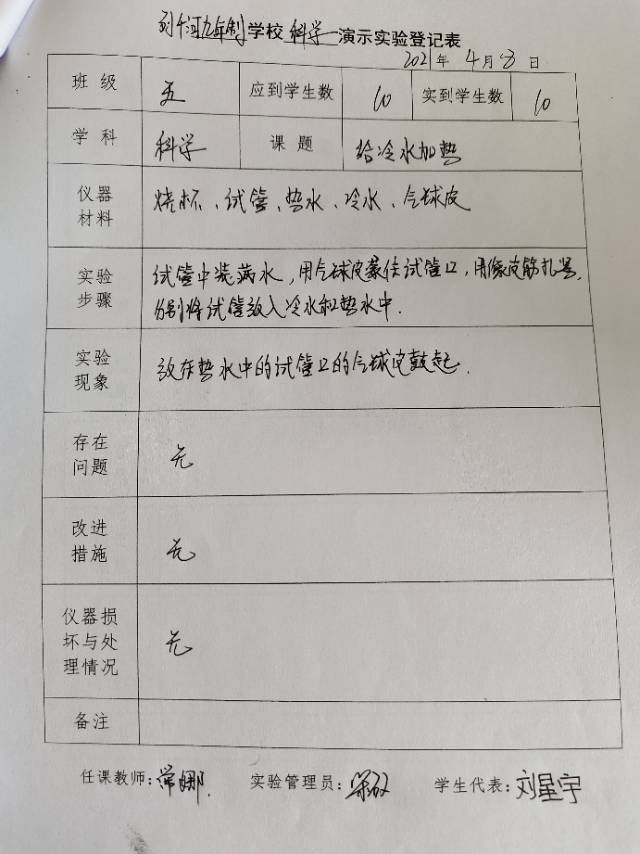 九年制学校科学演示实验登记表
2021年4月8日
班级 五 应到学生数 10 实到学生数 10
学科 科学 课题 给冷水加热
仪器材料 烧杯、试管、热水、冷水、气球皮
实验步骤 试管中装满水，用气球皮蒙住试管口，用橡皮筋扎紧，
分别将试管放入冷水和热水中．
实验现象 放在热水中的试管口的气球皮鼓起．
存在问题 无
改进措施 无
仪器损坏与处理情况 无
备注
任课教师：常娜． 实验管理员： 学生代表：刘星宇